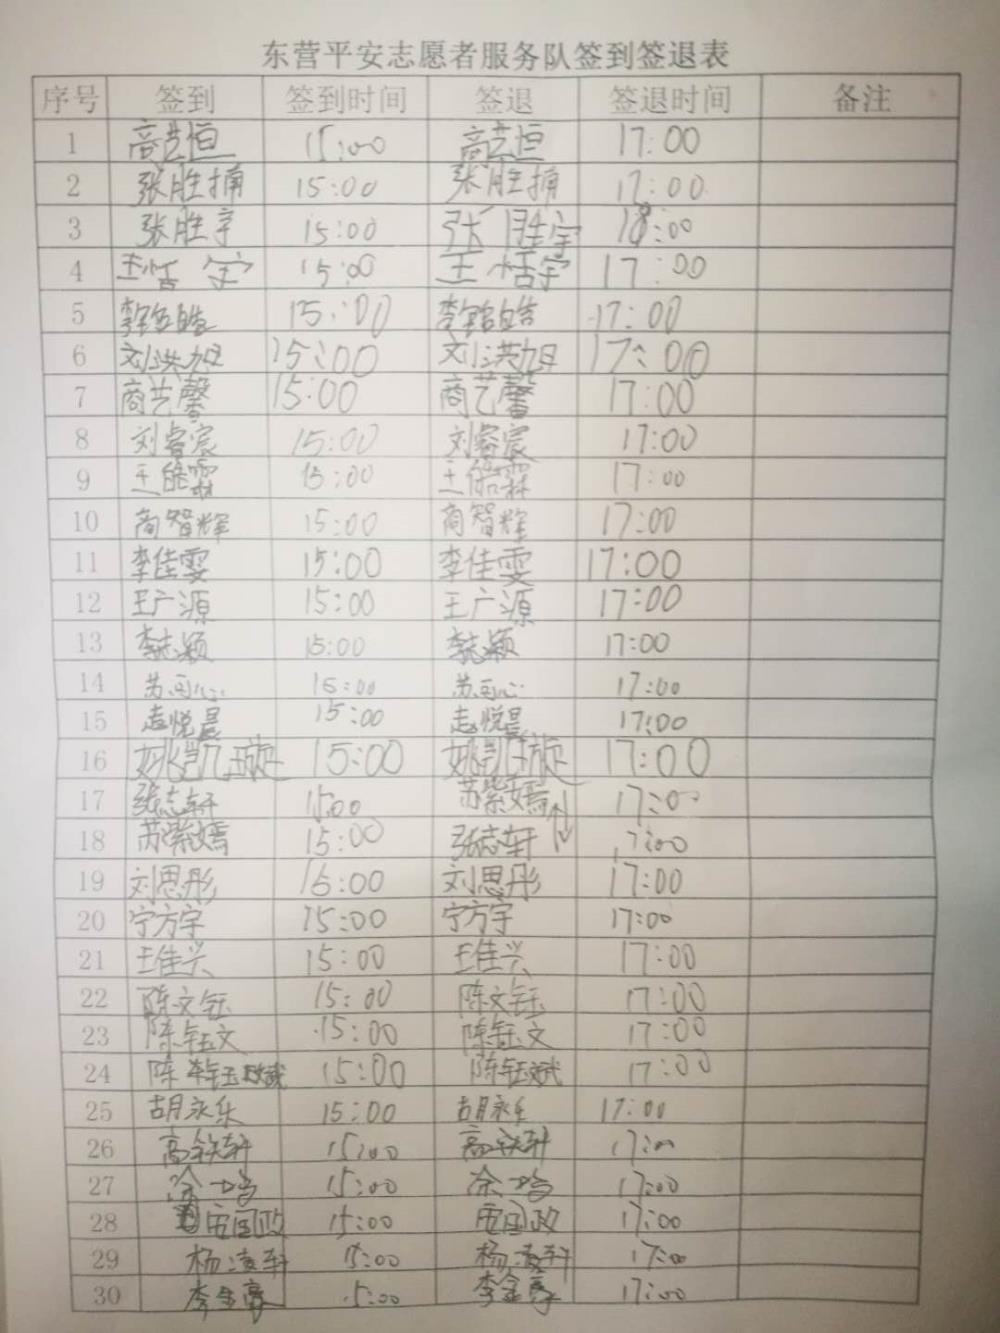 东营平安志愿者服务队签到签退表
序号 签到 签到时间 签退 签退时间 备注
1 商艺恒 15:00 商艺恒 17:00
2 张胜楠 15:00 张胜楠 17:00
3 张胜宇 15:00 张胜宇 18:00
4 王恬宇 15:00 王恬宇 17:00
5 李铭皓 15:00 李铭皓 17:00
6 刘洪旭 15:00 刘洪旭 17:00
7 商艺馨 15:00 商艺馨 17:00
8 刘睿宸 15:00 刘睿宸 17:00
9 王皓霖 15:00 王皓霖 17:00
10 商智辉 15:00 商智辉 17:00
11 李佳雯 15:00 李佳雯 17:00
12 王广源 15:00 王广源 17:00
13 李志颖 15:00 李志颖 17:00
14 15:00 17:00
15 悦晨 15:00 悦晨 17:00
16 姚凯璇 15:00 姚凯璇 17:00
17 张志轩 15:00 苏紫嫣 17:00
18 苏紫嫣 15:00 张志轩 17:00
19 刘思彤 15:00 刘思彤 17:00
20 宁方宇 15:00 宁方宇 17:00
21 王佳兴 15:00 王佳兴 17:00
22 陈文钰 15:00 陈文钰 17:00
23 陈钰文 15:00 陈钰文 17:00
24 陈钰斌 15:00 陈钰斌 17:00
25 胡永乐 15:00 胡永乐 17:00
26 高铁轩 15:00 高铁轩 17:00
27 涂一鸣 15:00 涂一鸣 17:00
28 国政 15:00 国政 17:00
29 杨凌轩 15:00 杨凌轩 17:00
30 李金豪 15:00 李金豪 17:00